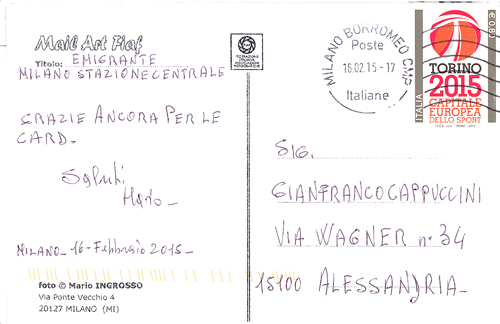 Mail Art Fiaf
Titolo: EMIGRANTE
MILANO STAZIONE CENTRALE
GRAZIE ANCORA PER LE
CARD.
Saluti
Mario
MILANO - 16 - Febbraio 2015 -
foto © Mario INGROSSO
Via Ponte Vecchio 4
20127 MILANO (MI)
MILANO BORROMEO CMP
Poste
16.02.15-17
Italiane
ITALIA
TORINO
2015
CAPITALE
EUROPEA
DELLO SPORT
SIG.
GIANFRANCO CAPPUCCINI
VIA WAGNER n° 34
15100 ALESSANDRIA